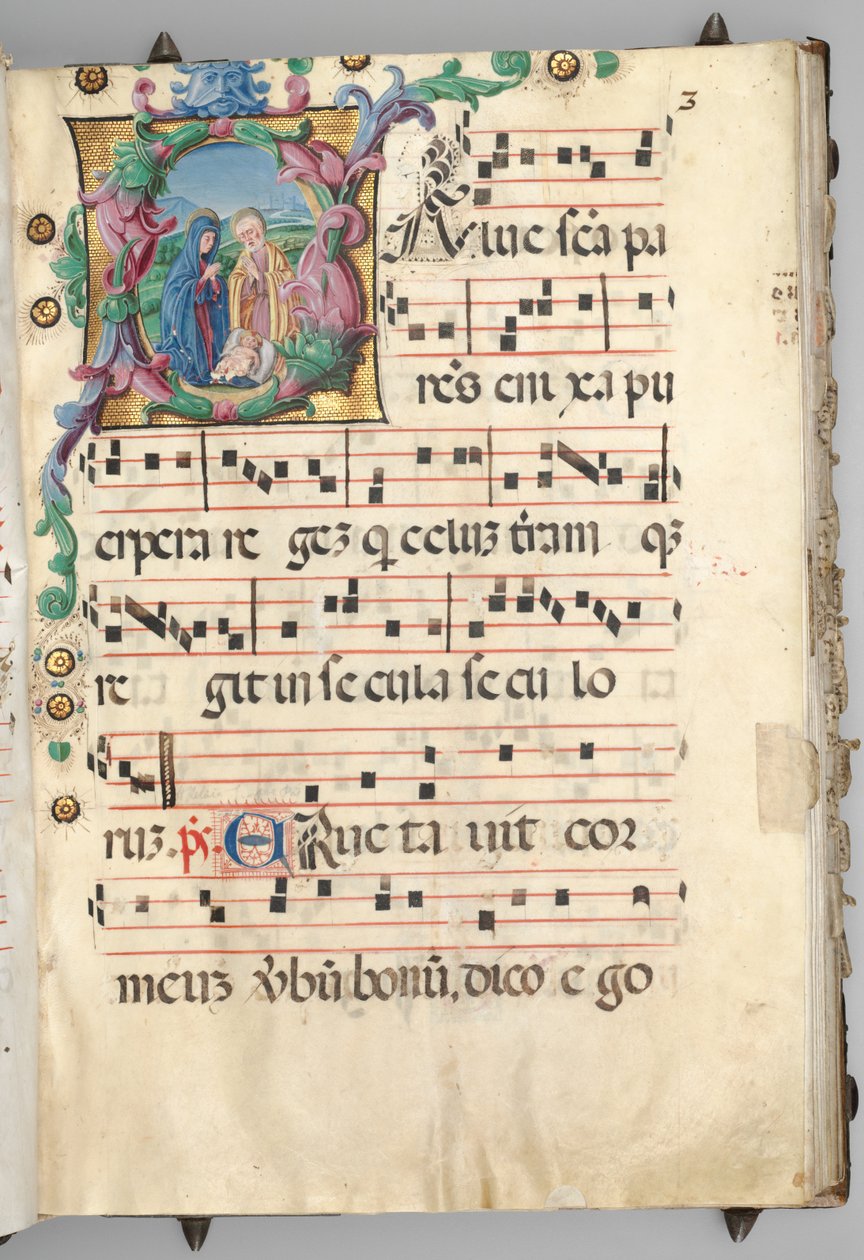 3
Alue scā pa
rēs enixa pu
erpera re geʒ q̄ celuʒ t̄ram qʒ
re git in se cula se cu lo
ruʒ. ps. E Ruc ta uit cor
meuʒ v̄bū bonū, dico e go